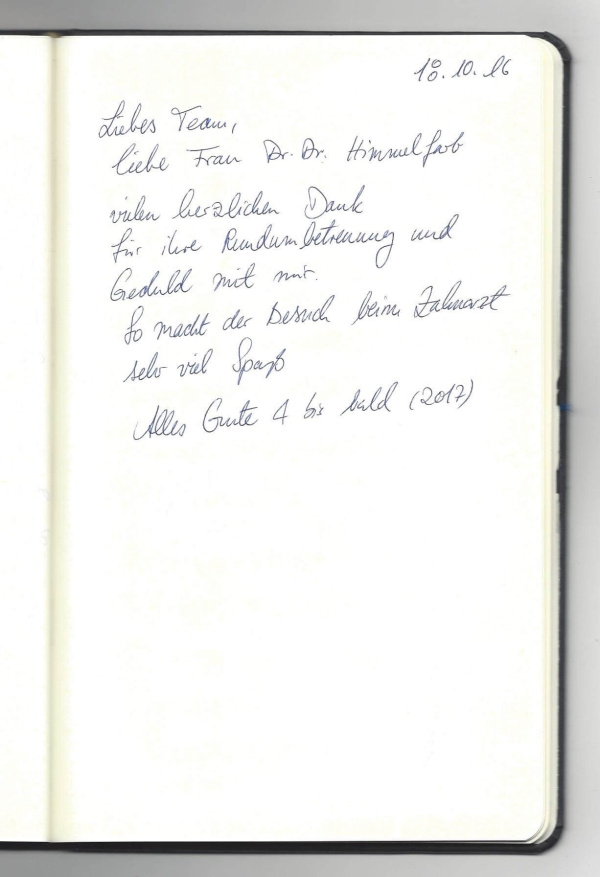 18.10.16
Liebes Team,
liebe Frau Dr. Dr. Himmelfarb
vielen herzlichen Dank
für ihre Rundumbetreuung und
Geduld mit mir.
So macht der Besuch beim Zahnarzt
sehr viel Spaß
Alles Gute & bis bald (2017)